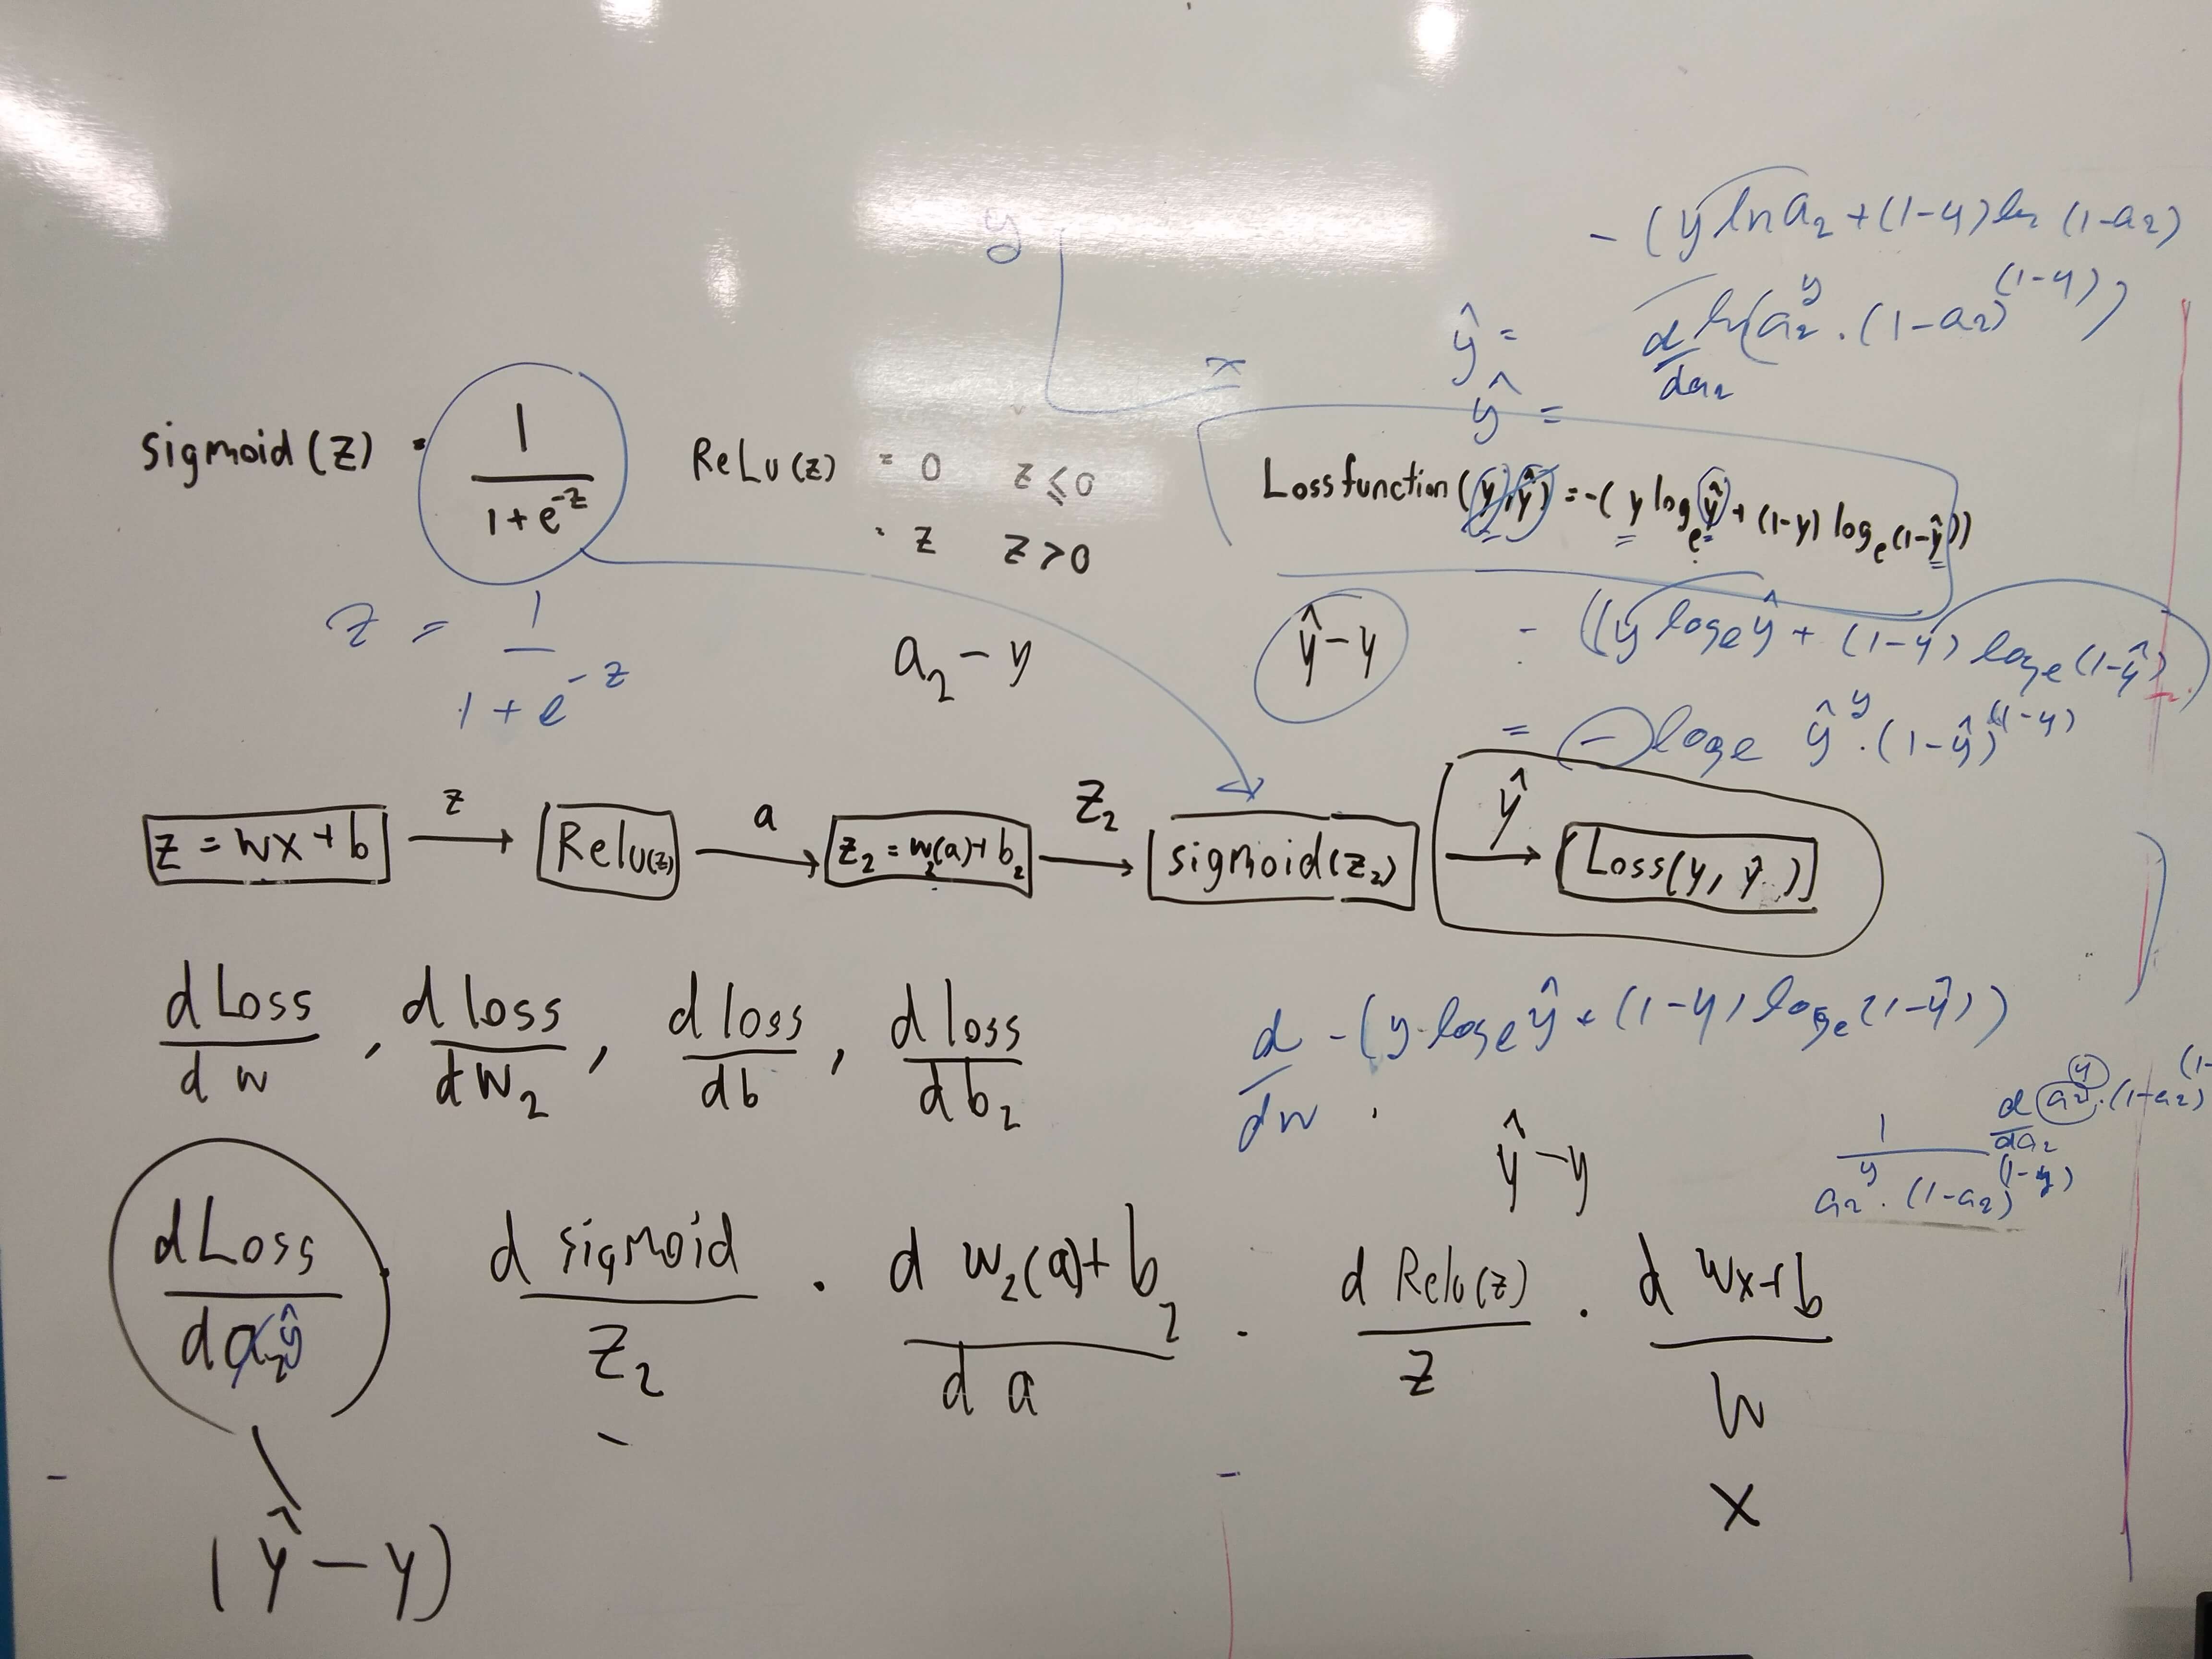 - (y ln a₂ + (1-y) ln (1-a₂)
y
ŷ =
d/da₂ ln(a₂^y . (1-a₂)^(1-y))
x
ŷ =
sigmoid(z) = 1/(1+e^-z)
ReLu(z) = 0 z ≤ 0
= z z > 0
Loss function (y, ŷ) = -( y log_e ŷ + (1-y) log_e (1-ŷ))
z = 1/(1+e^-z)
a₂ - y
ŷ - y
- ((y log_e ŷ + (1-y) log_e (1-ŷ)
= - log_e ŷ^y . (1-ŷ)^(1-y)
z = wx + b z Relu(z) a z₂ = w₂(a) + b₂ z₂ sigmoid(z₂) ŷ Loss(y, ŷ)
d Loss/d w , d loss/d w₂ , d loss/db , d loss/d b₂
d/dw - (y log_e ŷ + (1-y) log_e (1-ŷ))
1/(a₂^y . (1-a₂)^(1-y)) d/da₂ a₂^y . (1-a₂)^(1-
ŷ - y
d Loss/d a₂ ŷ d sigmoid/z₂ . d w₂(a) + b₂/d a . d Relu(z)/z . d wx+b/w
x
(ŷ - y)